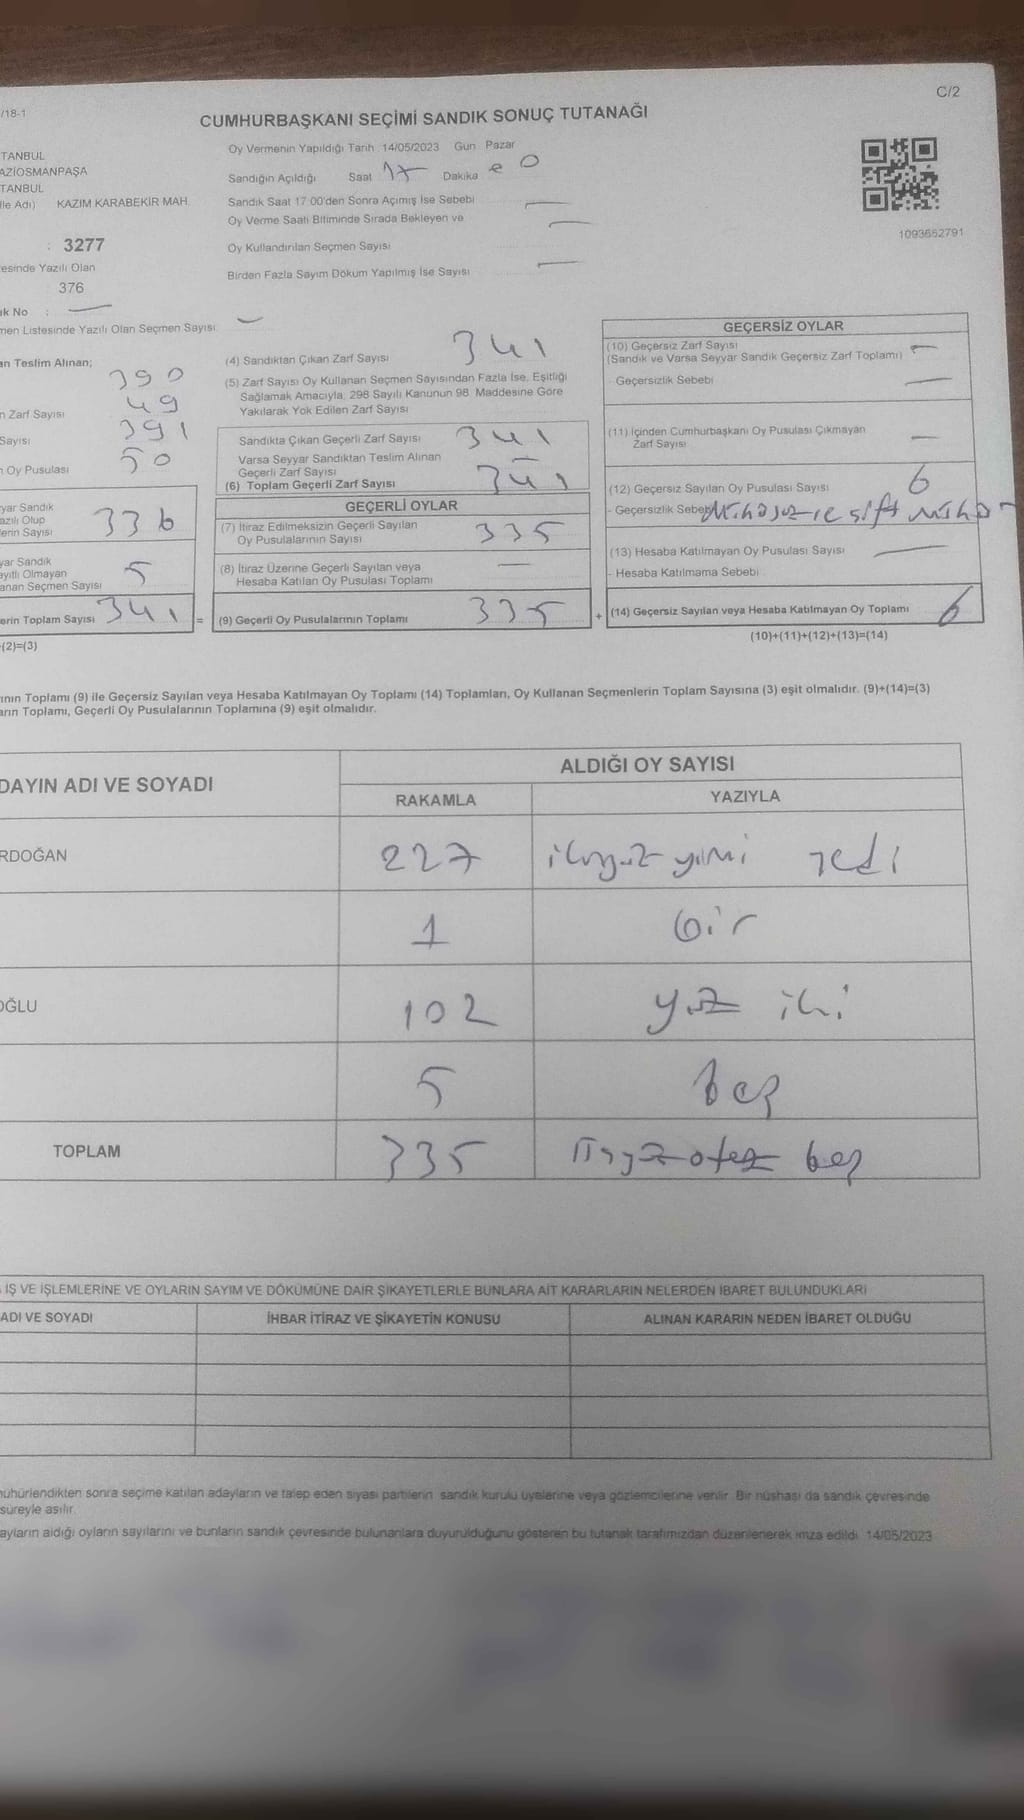 C/2
/18-1
CUMHURBAŞKANI SEÇİMİ SANDIK SONUÇ TUTANAĞI
TANBUL
AZİOSMANPAŞA
TANBUL
lle Adı) KAZIM KARABEKİR MAH.
: 3277
esinde Yazılı Olan
376
ık No :
men Listesinde Yazılı Olan Seçmen Sayısı
Oy Vermenin Yapıldığı Tarih 14/05/2023 Gün Pazar
Sandığın Açıldığı Saat 17 Dakika 00
Sandık Saat 17:00'den Sonra Açımış İse Sebebi
Oy Verme Saati Bitiminde Sırada Bekleyen ve
Oy Kullandırılan Seçmen Sayısı
Birden Fazla Sayım Döküm Yapılmış İse Sayısı
1093652791
an Teslim Alınan;
390
49
n Zarf Sayısı
391
Sayısı
50
n Oy Pusulası
yar Sandık
azılı Olup
lerin Sayısı 336
yar Sandık
ayıtlı Olmayan
anan Seçmen Sayısı 5
erin Toplam Sayısı 341 =
(2)=(3)
(4) Sandıktan Çıkan Zarf Sayısı 341
(5) Zarf Sayısı Oy Kullanan Seçmen Sayısından Fazla İse, Eşitliği
Sağlamak Amacıyla, 298 Sayılı Kanunun 98. Maddesine Göre
Yakılarak Yok Edilen Zarf Sayısı
Sandıkta Çıkan Geçerli Zarf Sayısı 341
Varsa Seyyar Sandıktan Teslim Alınan
Geçerli Zarf Sayısı
(6) Toplam Geçerli Zarf Sayısı 341
GEÇERLİ OYLAR
(7) İtiraz Edilmeksizin Geçerli Sayılan
Oy Pusulalarının Sayısı 335
(8) İtiraz Üzerine Geçerli Sayılan veya
Hesaba Katılan Oy Pusulası Toplamı
(9) Geçerli Oy Pusulalarının Toplamı 335 +
GEÇERSİZ OYLAR
(10) Geçersiz Zarf Sayısı
(Sandık ve Varsa Seyyar Sandık Geçersiz Zarf Toplamı)
- Geçersizlik Sebebi
(11) İçinden Cumhurbaşkanı Oy Pusulası Çıkmayan
Zarf Sayısı
(12) Geçersiz Sayılan Oy Pusulası Sayısı 6
- Geçersizlik Sebebi
(13) Hesaba Katılmayan Oy Pusulası Sayısı
- Hesaba Katılmama Sebebi
(14) Geçersiz Sayılan veya Hesaba Katılmayan Oy Toplamı 6
(10)+(11)+(12)+(13)=(14)
ının Toplamı (9) ile Geçersiz Sayılan veya Hesaba Katılmayan Oy Toplamı (14) Toplamları, Oy Kullanan Seçmenlerin Toplam Sayısına (3) eşit olmalıdır. (9)+(14)=(3)
arın Toplamı, Geçerli Oy Pusulalarının Toplamına (9) eşit olmalıdır.
DAYIN ADI VE SOYADI ALDIĞI OY SAYISI
RAKAMLA YAZIYLA
RDOĞAN 227 ikiyüz yirmi yedi
1 bir
OĞLU 102 yüz iki
5 beş
TOPLAM 335 üçyüz otuz beş
İŞ VE İŞLEMLERİNE VE OYLARIN SAYIM VE DÖKÜMÜNE DAİR ŞİKAYETLERLE BUNLARA AİT KARARLARIN NELERDEN İBARET BULUNDUKLARI
ADI VE SOYADI İHBAR İTİRAZ VE ŞİKAYETİN KONUSU ALINAN KARARIN NEDEN İBARET OLDUĞU
mühürlendikten sonra seçime katılan adayların ve talep eden siyasi partilerin sandık kurulu üyelerine veya gözlemcilerine verilir. Bir nüshası da sandık çevresinde
süreyle asılır.
ayların aldığı oyların sayılarını ve bunların sandık çevresinde bulunanlara duyurulduğunu gösteren bu tutanak tarafımızdan düzenlenerek imza edildi. 14/05/2023